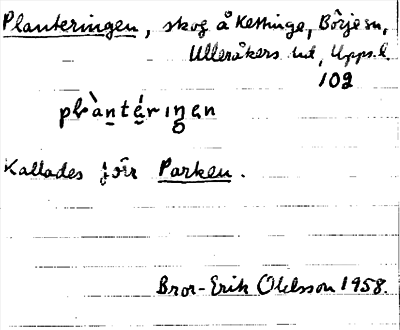 Planteringen, skog å Kettinge, Börje sn,
Ulleråkers hd, Upps. l.
102
plàntérıŋen
Kallades förr Parken.
Bror-Erik Ohlsson 1958.